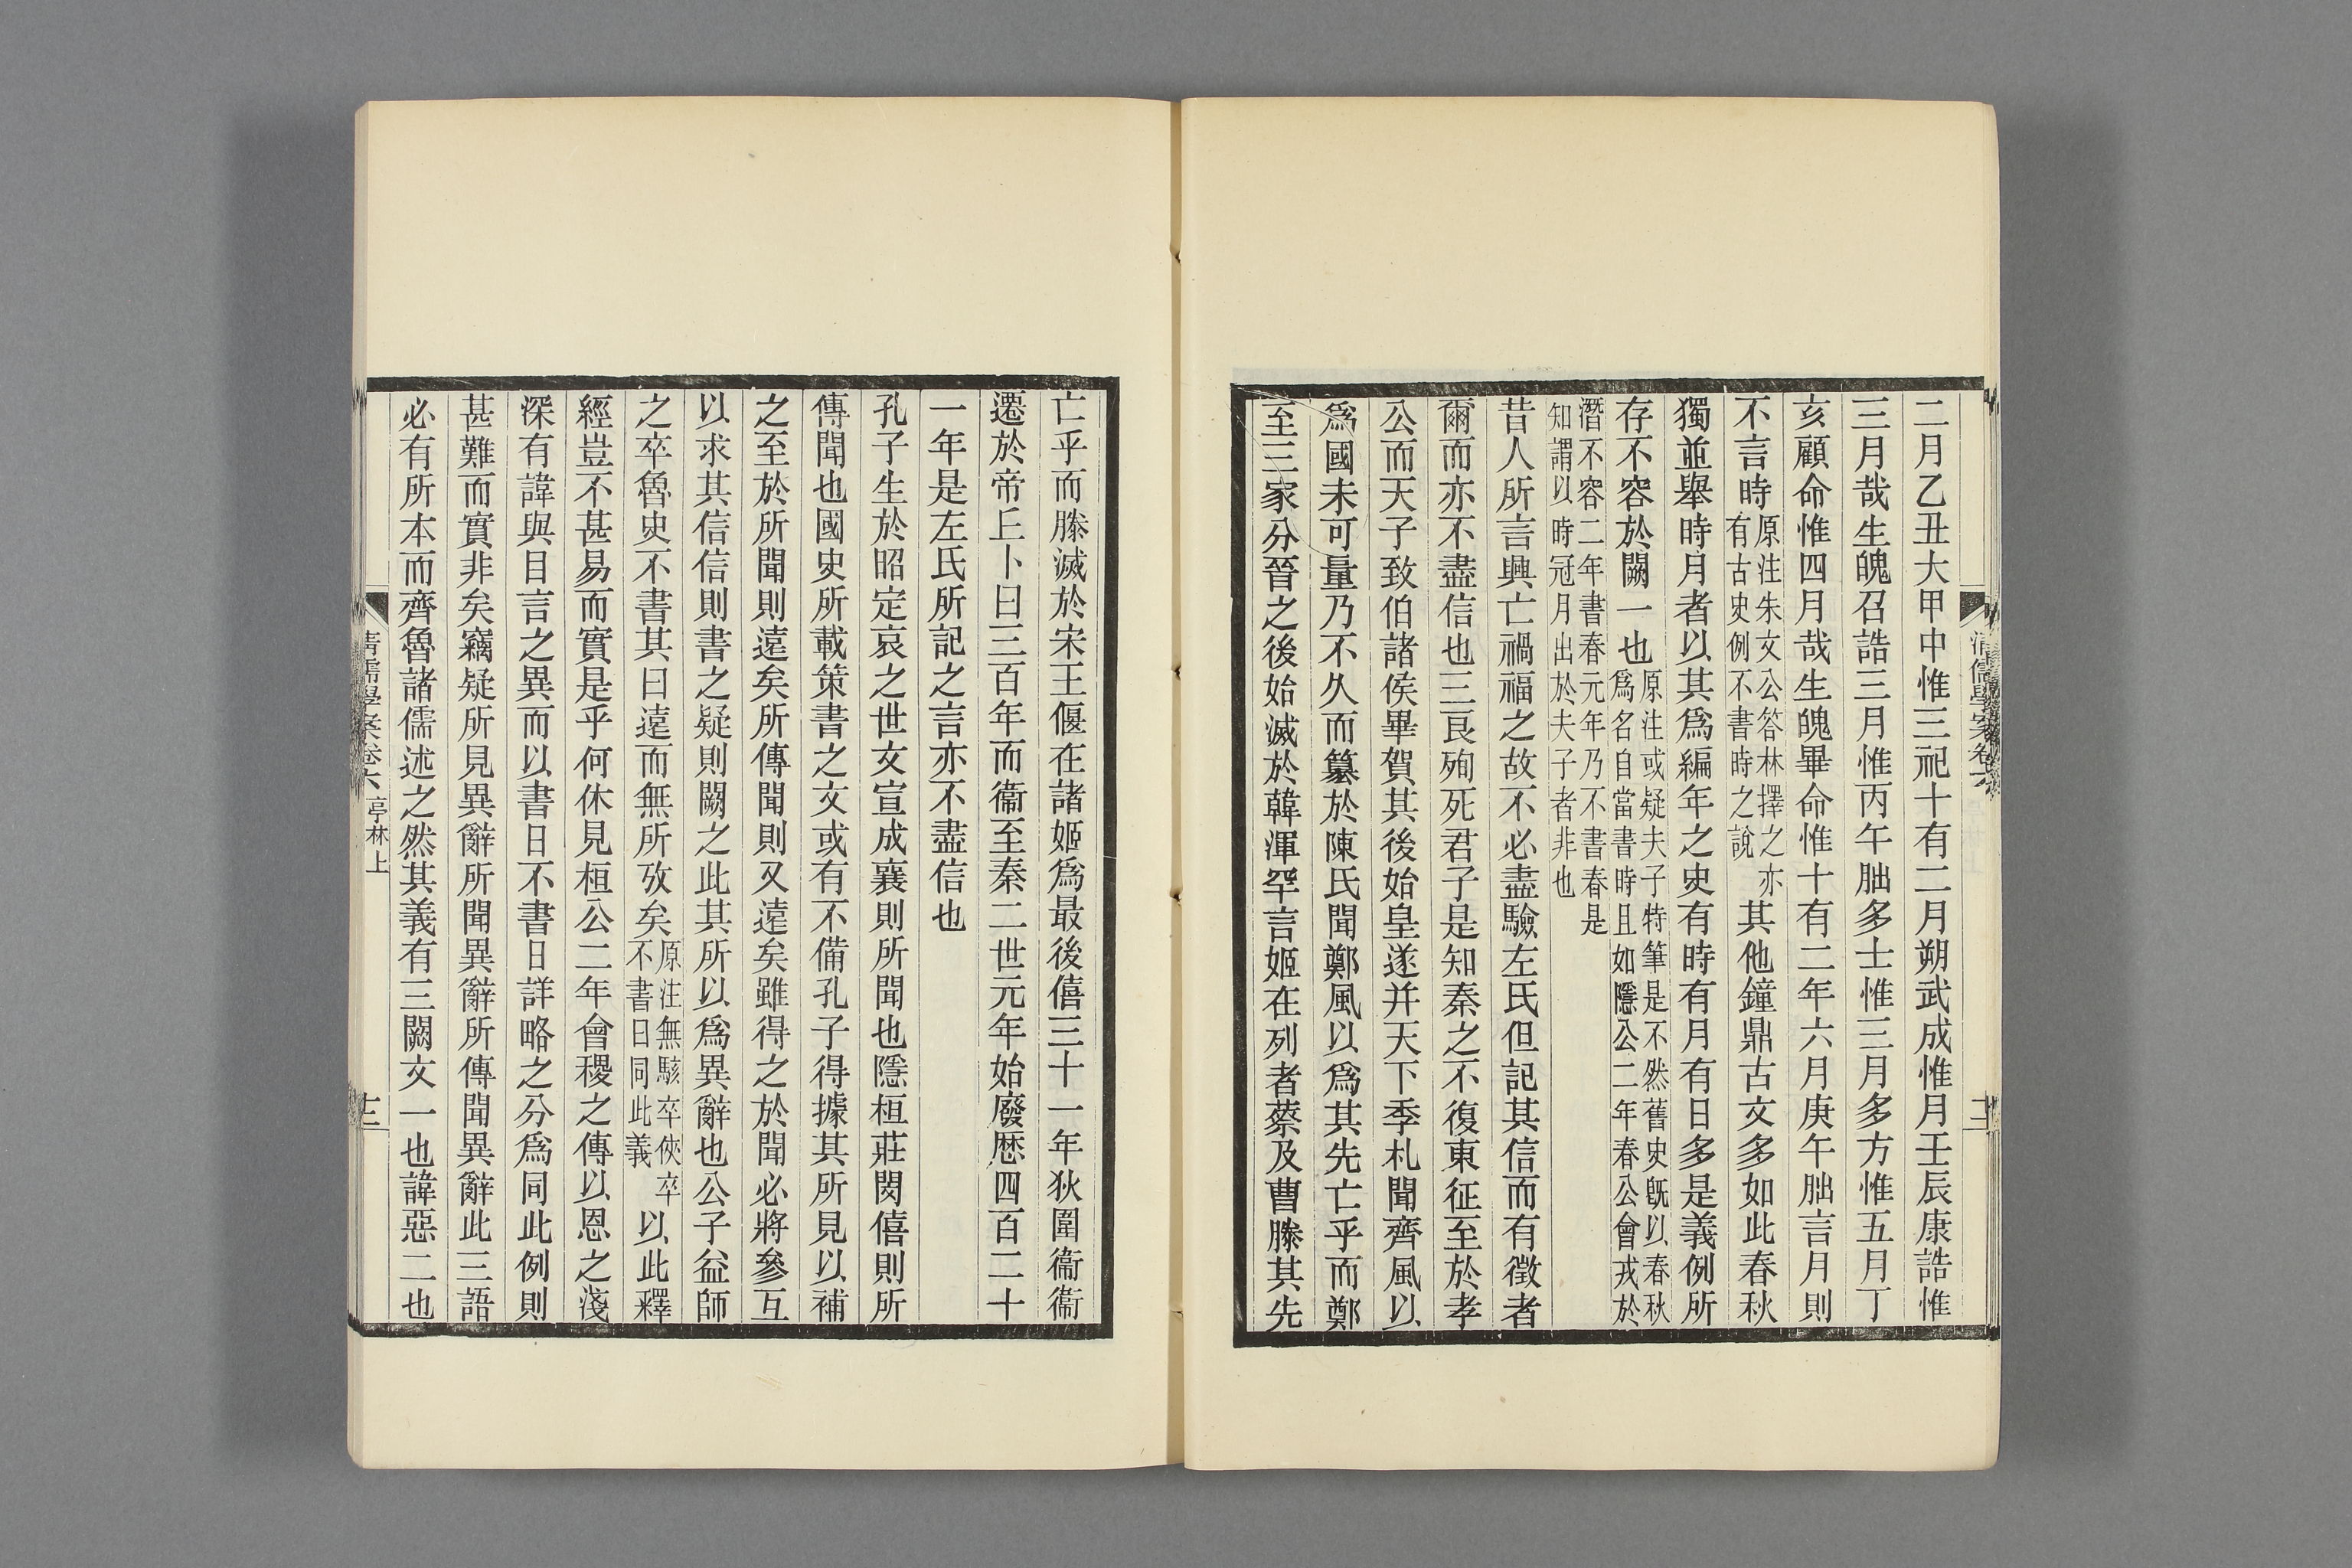 二月乙丑大甲中惟三祀十有二月朔武成惟月壬辰康誥惟
三月哉生魄召誥三月惟丙午朏多士惟三月多方惟五月丁
亥顧命惟四月哉生魄畢命惟十有二年六月庚午朏言月則
不言時原注朱文公答林擇之亦有古史例不書時之說其他鐘鼎古文多如此春秋
獨並舉時月者以其爲編年之史有時有月有日多是義例所
存不容於闕一也原注或疑夫子特筆是不然舊史旣以春秋爲名自當書時且如隱公二年春公會戎於
潛不容二年書春元年乃不書春是知謂以時冠月出於夫子者非也
昔人所言興亡禍福之故不必盡驗左氏但記其信而有徵者
爾而亦不盡信也三良殉死君子是知秦之不復東征至於孝
公而天子致伯諸侯畢賀其後始皇遂并天下季札聞齊風以
爲國未可量乃不久而簒於陳氏聞鄭風以爲其先亡乎而鄭
至三家分晉之後始滅於韓渾罕言姬在列者蔡及曹滕其先
亡乎而滕滅於宋王偃在諸姬爲最後僖三十一年狄圍衞衞
遷於帝丘卜曰三百年而衞至秦二世元年始廢歷四百二十
一年是左氏所記之言亦不盡信也
孔子生於昭定哀之世文宣成襄則所聞也隱桓莊閔僖則所
傳聞也國史所載策書之文或有不備孔子得據其所見以補
之至於所聞則遠矣所傳聞則又遠矣雖得之於聞必將參互
以求其信信則書之疑則闕之此其所以爲異辭也公子益師
之卒魯史不書其日遠而無所攷矣原注無駭卒俠卒不書日同此義以此釋
經豈不甚易而實是乎何休見桓公二年會稷之傳以恩之淺
深有諱與目言之異而以書日不書日詳略之分爲同此例則
甚難而實非矣竊疑所見異辭所聞異辭所傳聞異辭此三語
必有所本而齊魯諸儒述之然其義有三闕文一也諱惡二也
清儒學案卷六 亭林上